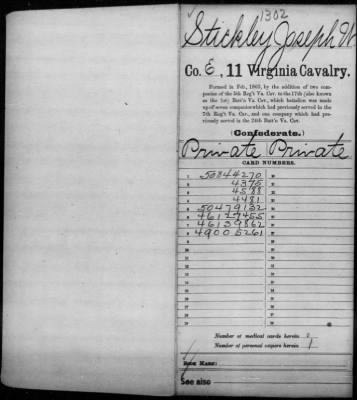 1302
Stickley Joseph W
Co. E, 11 Virginia Cavalry.
Formed in Feb., 1863, by the addition of two com-
panies of the 5th Reg't Va. Cav. to the 17th (also known
as the 1st) Batt'n Va. Cav., which battalion was made
up of seven companies which had previously served in the
7th Reg't Va. Cav., and one company which had pre-
viously served in the 24th Batt'n Va. Cav.
(Confederate.)
Private Private
CARD NUMBERS.
1 50844270
2 4375
3 4588
4 4481
5 50479132
6 46127455
7 46139862
8 49005261
Number of medical cards herein 0
Number of personal papers herein 1
BOOK MARK:
See also